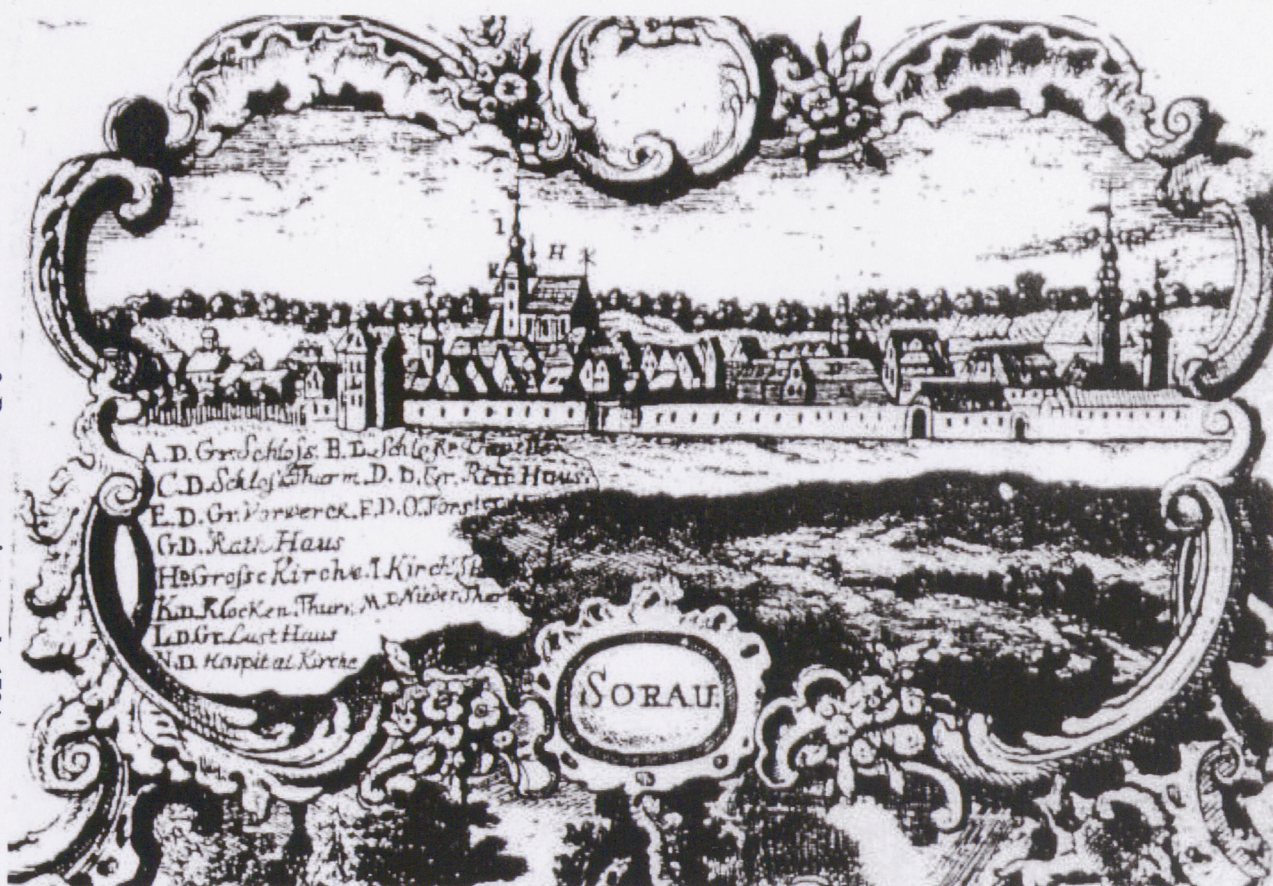 I
H
K
A. D. Gr. Schloss. B. D.
C. D. Schloss Thurm. D. D. Gr. Reit Haus.
E. D. Gr. Vorwerck. F. D. O. Forster
G D. Rath Haus
H. D. Grosse Kirche. I. Kirch
K. D. Klocken Thurn. M. D. Nieder Thor
L. D. Gr. Lust Haus
N. D. Hospital Kirche
SORAU.